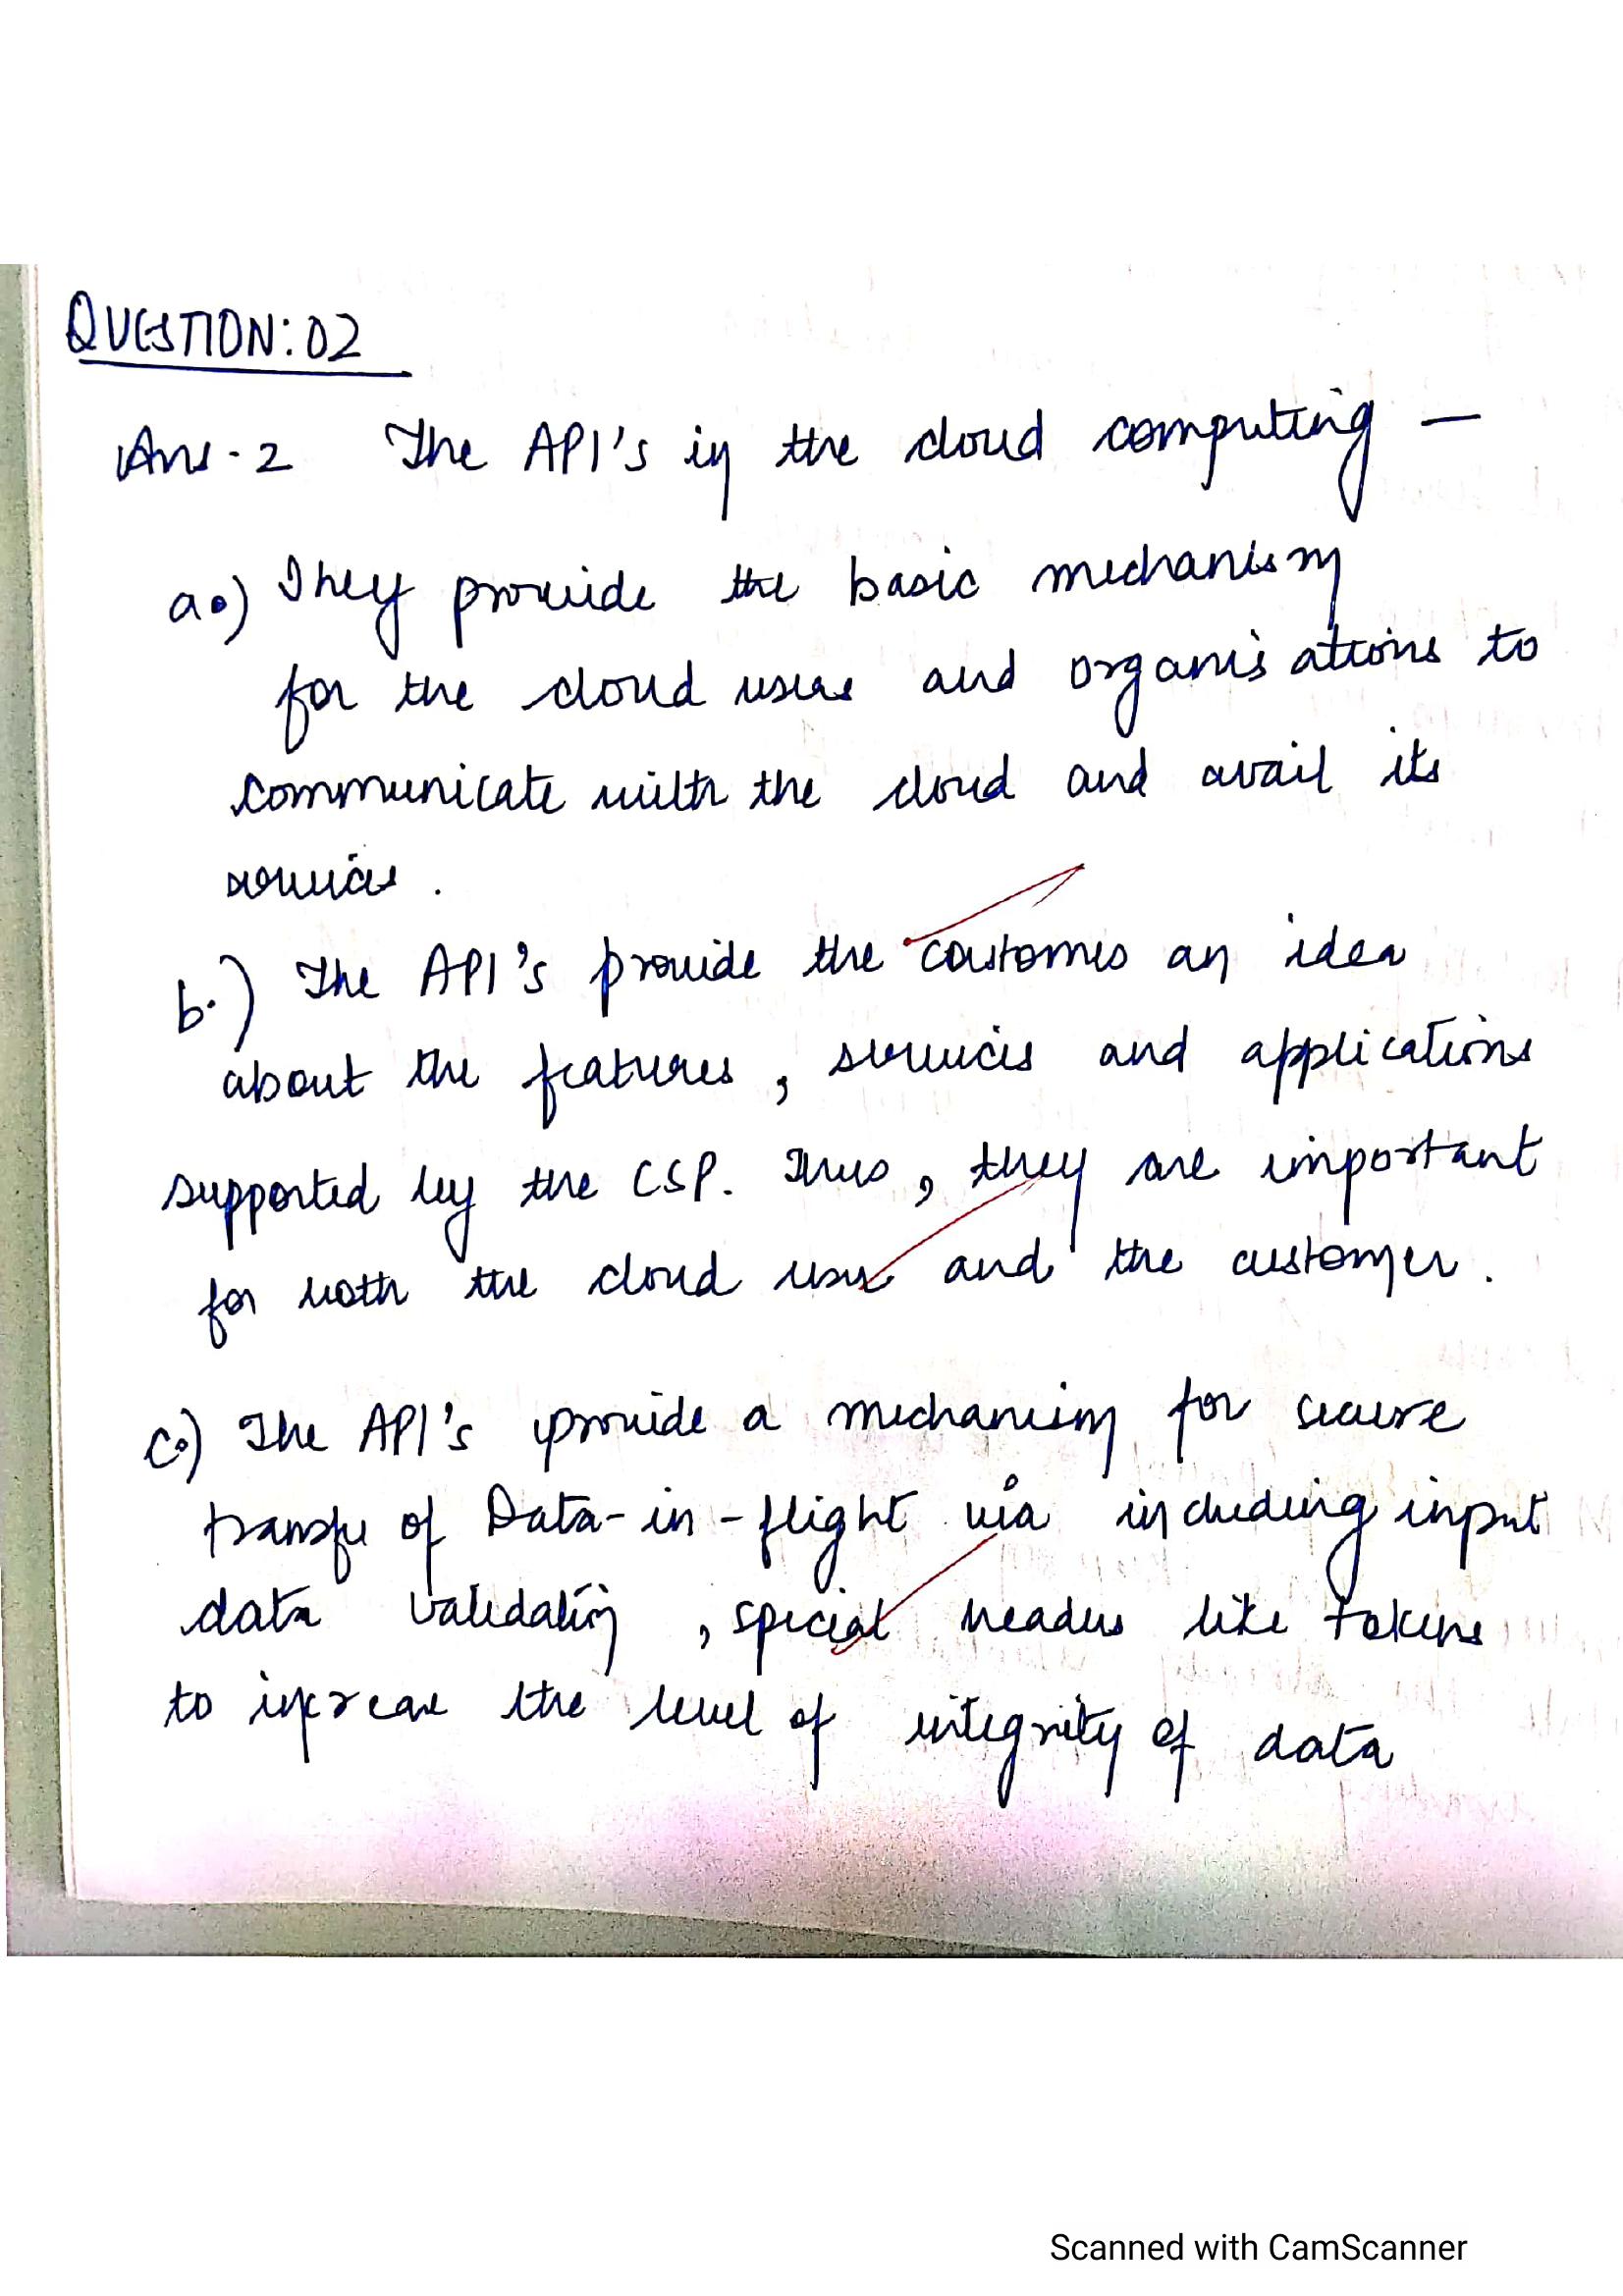 QUESTION: 02
Ans-2 The API's in the cloud computing —
a.) They provide the basic mechanism
for the cloud users and organisations to
communicate with the cloud and avail its
services.
b.) The API's provide the customers an idea
about the features, services and applications
supported by the CSP. Thus, they are important
for both the cloud user and the customer.
c.) The API's provide a mechanism for secure
transfer of Data-in-flight via including input
data validation, special headers like tokens
to increase the level of integrity of data
Scanned with CamScanner